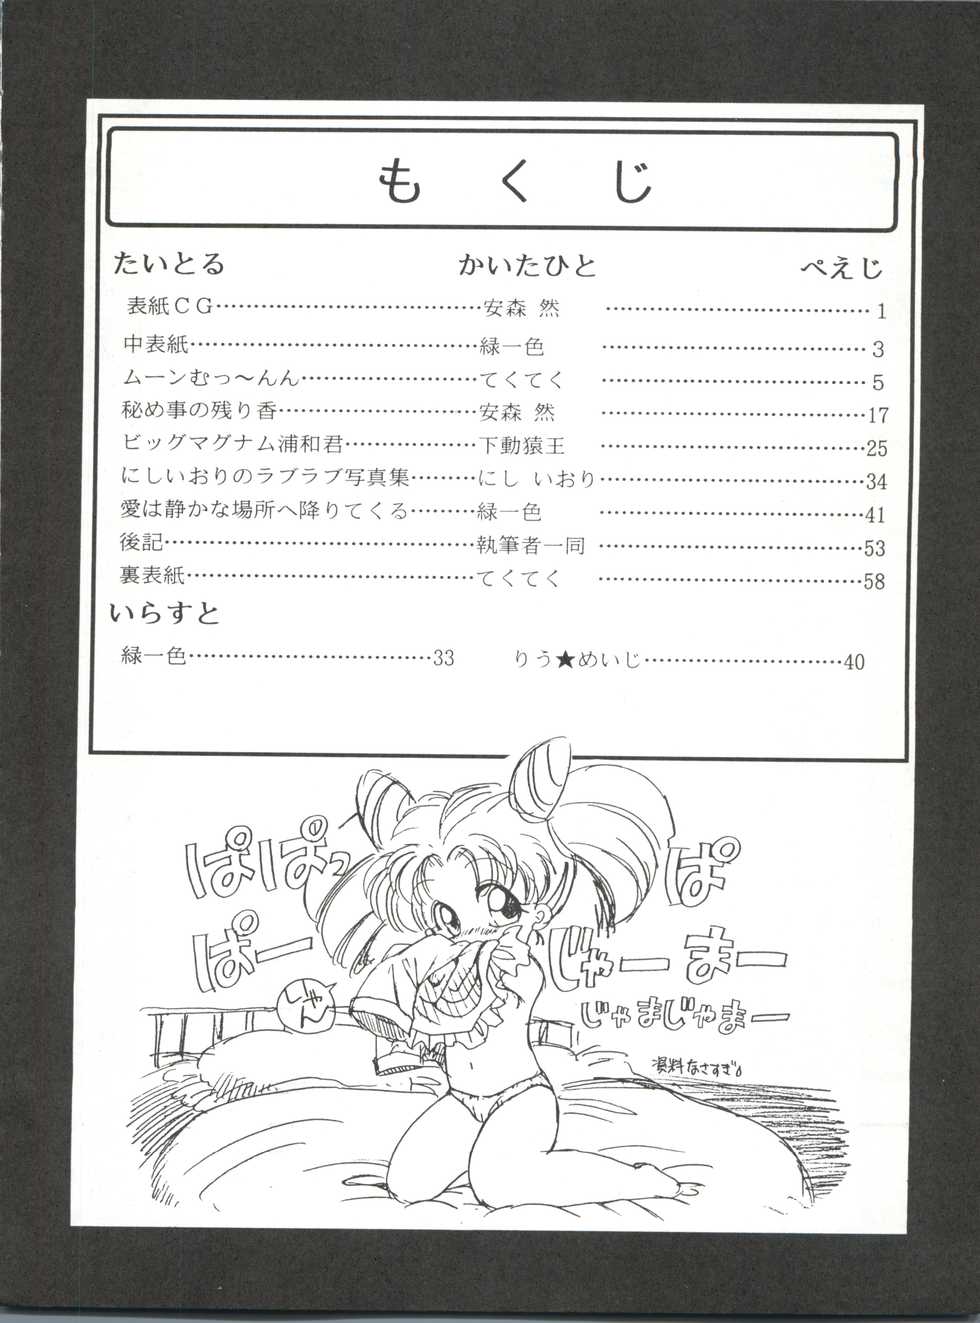 もくじ
たいとる かいたひと ぺえじ
表紙ＣＧ……………………………安森 然 ……………………………1
中表紙………………………………緑一色 ……………………………3
ムーンむっ～んん…………………てくてく ……………………………5
秘め事の残り香……………………安森 然 ……………………………17
ビッグマグナム浦和君……………下動猿王 ……………………………25
にしいおりのラブラブ写真集………にし いおり……………………………34
愛は静かな場所へ降りてくる………緑一色 ……………………………41
後記…………………………………執筆者一同 ……………………………53
裏表紙………………………………てくてく ……………………………58
いらすと
緑一色…………………………33 りう★めいじ……………………40
ぱぱぱっ
ぱー
しゃん
ぱ
じゃーまー
じゃまじゃまー
資料なさすぎ